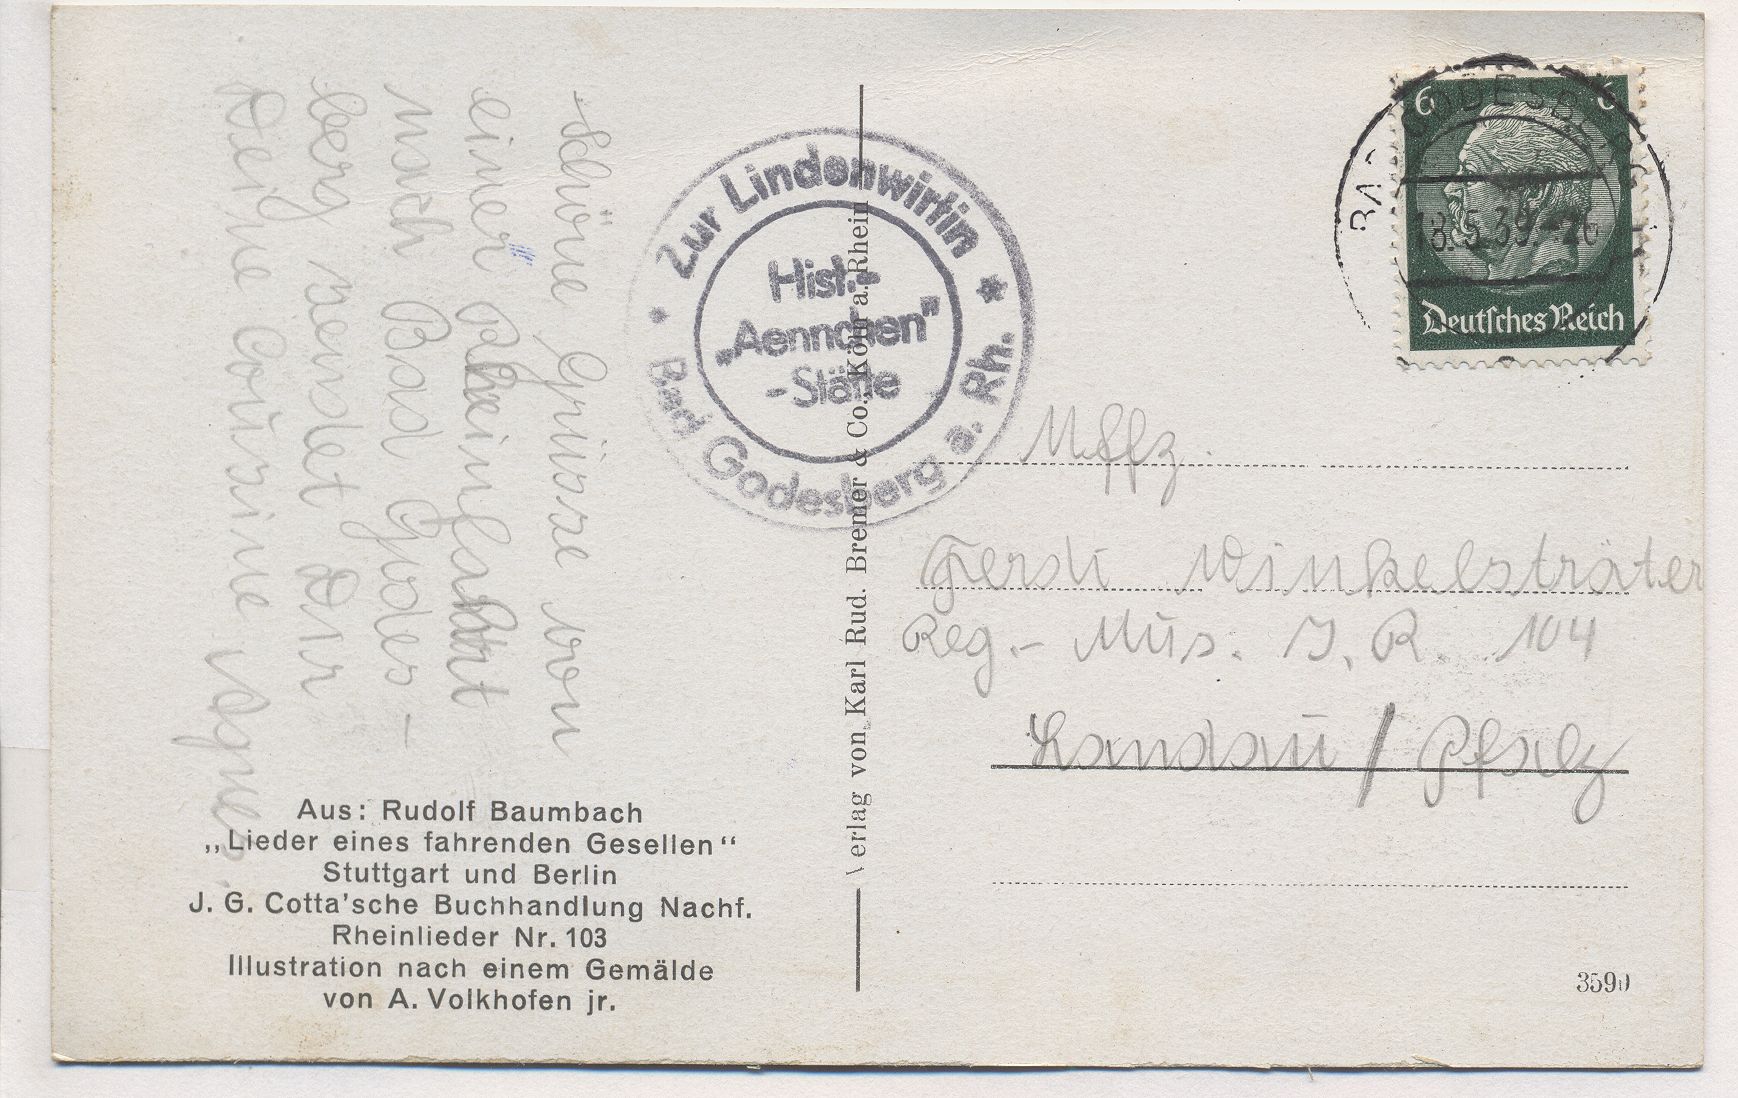 Schöne Grüsse von
einer Rheinfahrt
nach Bad Godes-
berg sendet Dir
Deine Cousine Agnes.
Aus: Rudolf Baumbach
„Lieder eines fahrenden Gesellen“
Stuttgart und Berlin
J. G. Cotta'sche Buchhandlung Nachf.
Rheinlieder Nr. 103
Illustration nach einem Gemälde
von A. Volkhofen jr.
Zur Lindenwirtin
Hist.-
„Aennchen”
-Stätte
Bad Godesberg a. Rh.
Verlag von Karl Rud. Bremer & Co., Köln a. Rhein
6 6
Deutsches Reich
BAD GODESBERG
18.5.39.-
Uffz.
Ferdi Winkelsträter
Reg.- Mus. I. R. 104
Landau / Pfalz
3590